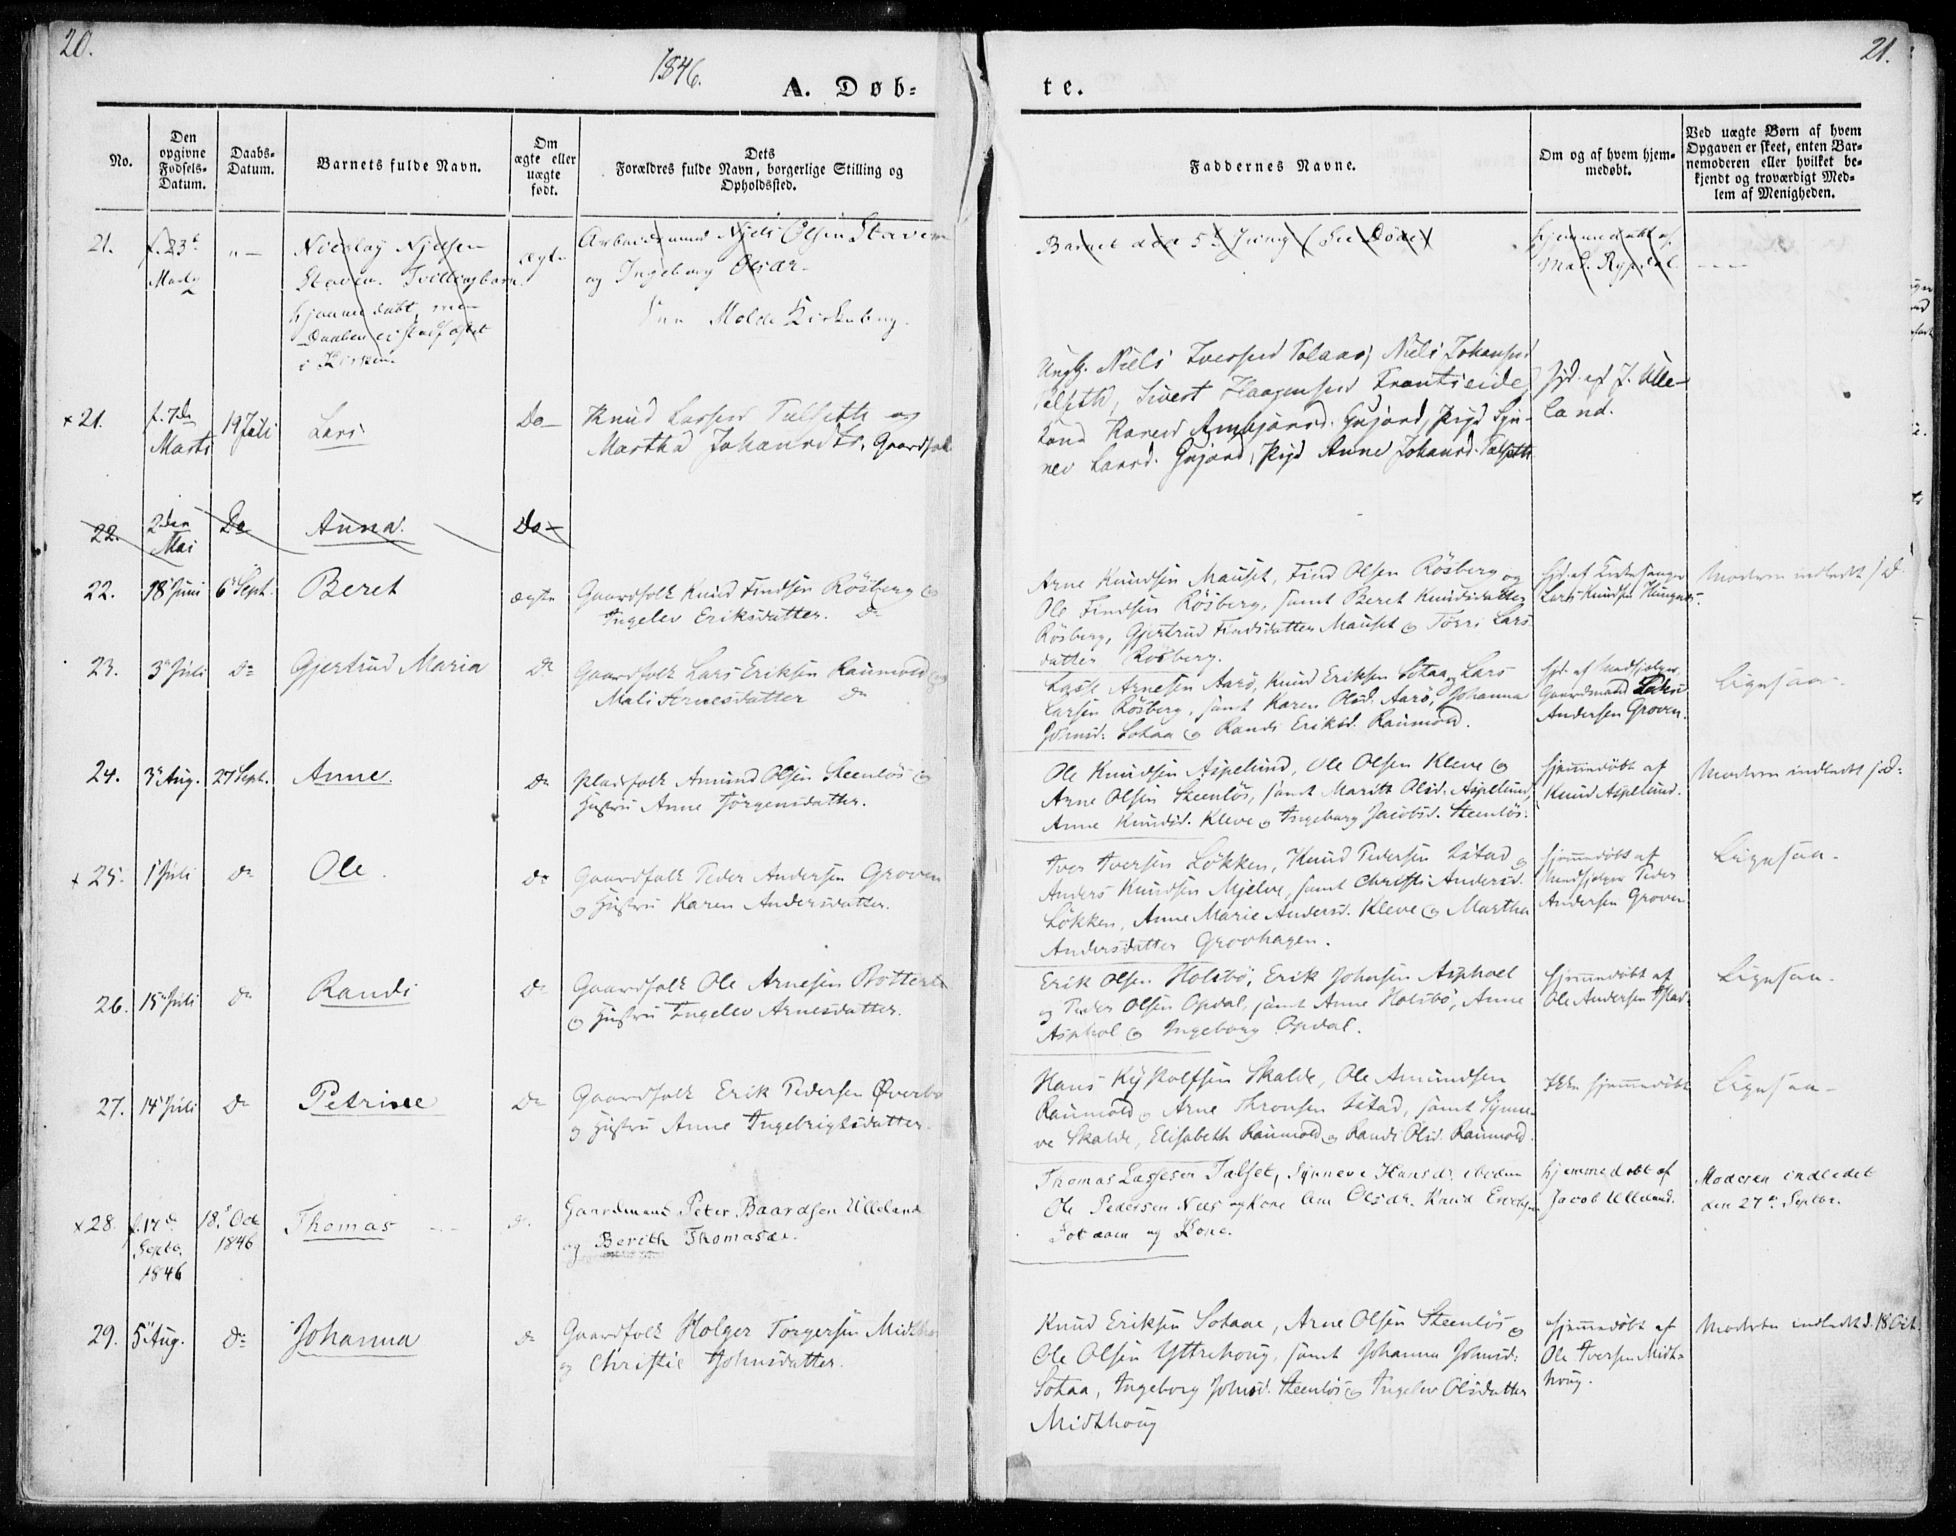 20.
1846.
21.
A. Døb-
te.
No.
Den
opgivne
Fødsels-
Datum.
Daabs-
Datum.
Barnets fulde Navn.
Om
ægte eller
uægte
født.
Dets
Forældres fulde Navn, borgerlige Stilling og
Opholdssted.
Faddernes Navne.
Om og af hvem hjem-
medøbt.
Ved uægte Børn af hvem
Opgaven er skeet, enten Bar-
nemoderen eller hvilket be-
kjendt og troværdigt Med-
lem af Menigheden.
21.
f. 23d
"–
Nicolay Nielsen
Staven. Tvillingbarn
hjemmedøbt, men
Daaben ei stadfæstet
i Kirken
ægte
Arbeidsmand Niels Olsen Staven
og Ingeborg Olsdr.
Molde Kirkebog.
Barnet død 5d Juny (See Døde)
hjemmedøbt af
Mad. Rypdal
x 21.
f. 7de
Marts
19 Juli
Lars
Do–
Knud Larsen Talseth og
Martha Johannsdtr, Gaardfolk
Ungk. Niels Iversen Tolaas, Niels Johansen
Talseth, Sivert Haagensen Frantseide,
Kone Karen Ambjørnsd. Gujord, Pige Syn-
nev Larsd. Gujord, Pige Anne Johansd. Talseth
Hjd. af J. Ulle-
land.
22.
2den
Mai
Do
Anna.
Do–
22.
18 Juni
6 Sept.
Beret
ægte
Gaardfolk Knud Findsen Rösberg og
Ingelev Eriksdatter. Do
Arne Knudsen Mauset, Find Olsen Rösberg og
Ole Findsen Rösberg, samt Beret Knudsdatter
Rösberg, Gjertrud Findsdatter Mauset og Torri Lars
datter Rösberg.
Hjd. af Kirkesanger
Lars Knudsen Hungnes.
Moderen indledt s. D.
23.
3 Juli
Do
Gjertrud Maria
Do
Gaardfolk Lars Eriksen Raumold og
Mali Arnesdatter Do
Lasse Arnesen Aarö, Knud Eriksen Sotaa, Lars
Larsen Rösberg, samt Karen Olsd. Aarö, Johanna
Johnsd. Sotaa og Randi Eriksd. Raumold.
Hjd. af Medhjælper
Gaardmand Peder
Andersen Groven.
Ligesaa–
24.
3 Aug.
27 Sept.
Anne.
Do
Pladsfolk Amund Olsen Steenlös og
Hustru Anne Jörgensdatter.
Ole Knudsen Aspelund, Ole Olsen Kleve og
Arne Olsen Steenlös, samt Marith Olsd. Aspelund,
Anne Knudsd. Kleve og Ingeborg Jacobsd. Steenlös.
Hjemmedöbt af
Knud Aspelund.
Moderen indledt s. D.
x 25.
1 Juli
Do
Ole.
Do
Gaardfolk Peder Andersen Groven
og Hustru Karen Andersdatter.
Iver Iversen Lökken, Knud Pedersen Istad og
Anders Knudsen Mjelve, samt Christi Andersd.
Lökken, Anne Marie Andersd. Kleve og Martha
Andersdatter Grovhagen.
Hjemmedöbt af
Medhjelper Peder
Andersen Groven
Ligesaa–
26.
15 Juli
Do
Randi
Do
Gaardfolk Ole Arnesen
og Hustru Ingelev Arnesdatter.
Erik Olsen Holsbö, Erik Johnsen Asphoel
og Peder Olsen Opdal, samt Anne Holsbö, Anne
Asphol og Ingeborg Opdal.
Hjemmedöbt af
Ole Andersen Istad
Ligesaa–
27.
14 Juli
Do
Petrine
Do
Gaardfolk Erik Pedersen Øverbø
og Hustru Anne Ingebrigtsdatter.
Hans Kystolfsen Skalde, Ole Amundsen
Raumold og Arne Thronsen Istad, samt Synne-
ve Skalde, Elisabeth Raumold og Randi Olsd. Raumold.
Ikke hjemmedöbt
Ligesaa–
x 28.
f. 17d
Septb.
1846
18d Oct
1846
Thomas
Do
Gaardmand Peter Baardsen Ulleland
og Berith Thomasdr.
Thomas Lassesen Talset, Synneve Hansdr. ibidem
Ole Pedersen Næs og Kone Ane Olsdr. Knud Erichsen
Sotaaen og Kone.
hjemmedøbt af
Jacob Ulleland.
Moderen indledet
den 27d Septbr.
29.
5 Aug.
Do
Johanna
Do
Gaardfolk Holger Torgersen Midthoug
og Christie Johnsdatter.
Knud Eriksen Sotaae, Arne Olsen Steenlös og
Ole Olsen Yttrehoug, samt Johanna Johnsd.
Sotaa, Ingeborg Johnsd. Steenlös og Ingelev Olsdatter
Midthoug
Hjemmedöbt af
Ole Iversen Midt-
houg.
Moderen indledt d. 18 Oct.